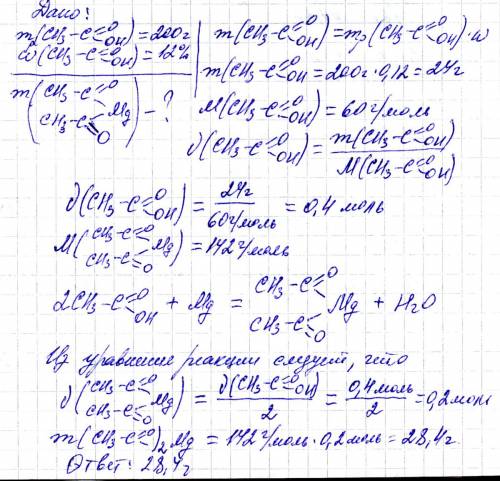 Дано:
m(CH₃-C(=O)OH)=200г
ω(CH₃-C(=O)OH)=12%
m(CH₃-C(=O) CH₃-C(=O) Mg) - ?
m(CH₃-C(=O)OH)=mр(CH₃-C(=O)OH)·ω
m(CH₃-C(=O)OH=200г·0,12=24г
M(CH₃-C(=O)OH)=60г/моль
ν(CH₃-C(=O)OH)=m(CH₃-C(=O)OH)/M(CH₃-C(=O)OH)
ν(CH₃-C(=O)OH)=24г/60г/моль=0,4 моль
M(CH₃-C(=O) CH₃-C(=O) Mg)=142г/моль
2CH₃-C(=O)OH + Mg = CH₃-C(=O) CH₃-C(=O) Mg + H₂O
Из уравнение реакции следует, что
ν(CH₃-C(=O) CH₃-C(=O) Mg)=ν(CH₃-C(=O)OH)/2=0,4моль/2=0,2моль
m(CH₃-C(=O))₂Mg=142г/моль·0,2моль=28,4г.
Ответ: 28,4г